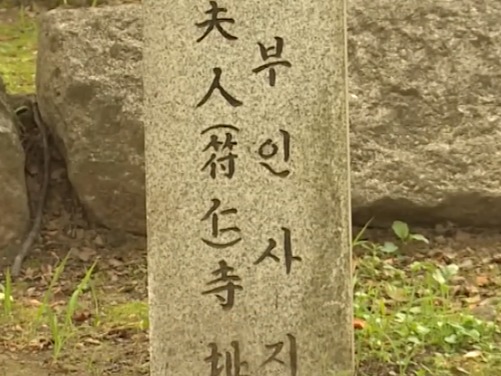 夫人(符仁)寺址
부인사지